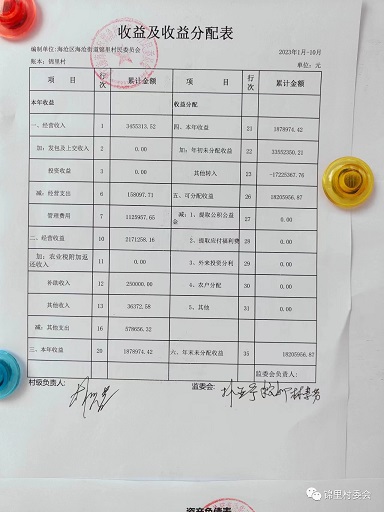 收益及收益分配表
编制单位:海沧区海沧街道锦里村民委员会 2023年1月-10月
账本:锦里村 单位:元
项 目 行次 累计金额 项 目 行次 累计金额
本年收益 收益分配
一、经营收入 1 3455313.52 四、本年收益 21 1878974.42
加:发包及上交收入 2 0.00 加:年初未分配收益 22 33552350.21
投资收益 3 0.00 其他转入 23 -17225367.76
减:经营支出 6 158097.71 五、可分配收益 26 18205956.87
管理费用 7 1125957.65 减:1、提取公积公益金 27 0.00
二、经营收益 10 2171258.16 2、提取应付福利费 28 0.00
加:农业税附加返还收入 11 0.00 3、外来投资分利 29 0.00
补助收入 12 250000.00 4、农户分配 30 0.00
其他收入 13 36372.58 5、其他 31 0.00
减:其他支出 16 578656.32
三、本年收益 20 1878974.42 六、年末未分配收益 35 18205956.87
监委会负责人:
村级负责人: 监委会:
资产负债表
锦里村委会